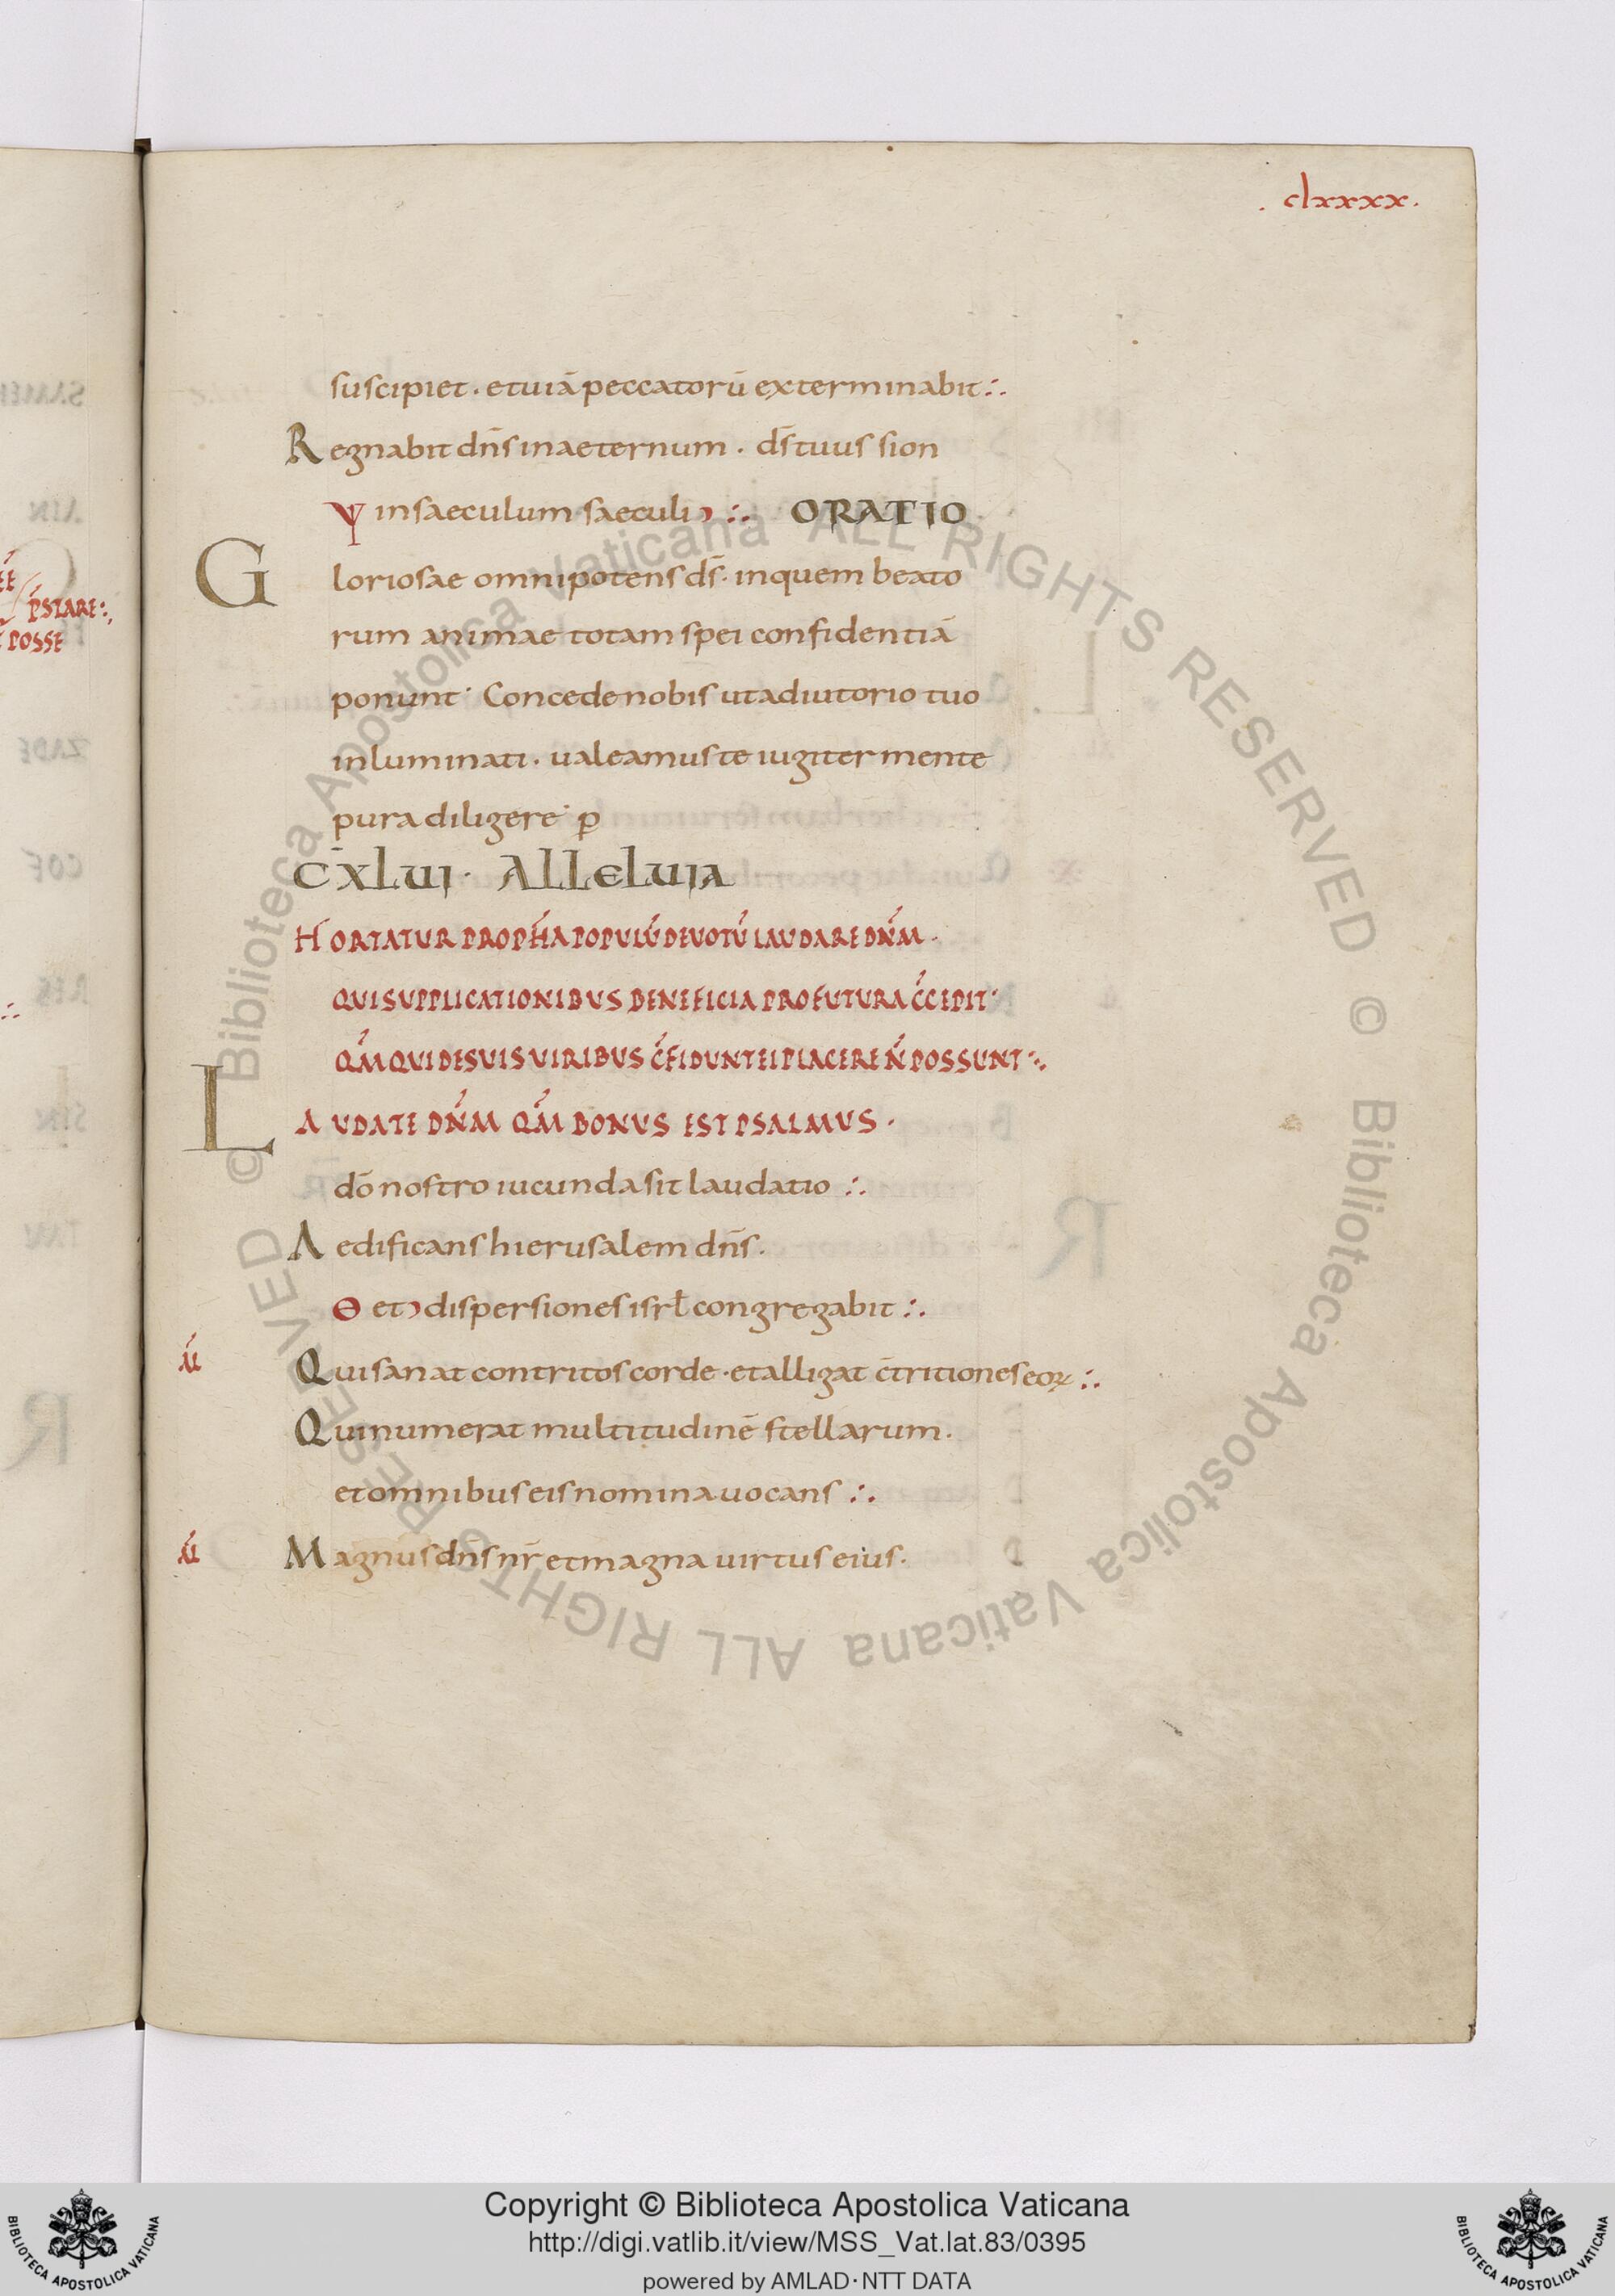 . clxxxx.
suscipiet. et uiā peccatorū exterminabit:.
Regnabit dn̄s in aeternum. ds̄ tuus sion
Ψ in saeculum saeculi :. ORATIO
Gloriosae omnipotens ds̄. in quem beato
rum animae totam spei confidentiā
ponunt. Concede nobis ut adiutorio tuo
inluminati. ualeamus te iugiter mente
pura diligere. p̄
CXLUI. ALLELUIA
HORTATUR PROPH̄A POPULŪ DEUOTŪ LAUDARE DN̄M.
QUI SUPPLICATIONIBUS BENEFICIA PROFUTURA C̄CEPIT.
QM̄ QUI DE SUIS UIRIBUS C̄FIDUNT EI PLACERE N̄ POSSUNT:.
LAUDATE DN̄M QM̄ BONUS EST PSALMUS.
dō nostro iucunda sit laudatio :.
Aedificans hierusalem dn̄s.
Θ et dispersiones isrł congregabit :.
Qui sanat contritos corde. et alligat c̄tritiones eoꝝ :.
Qui numerat multitudinē stellarum.
et omnibus eis nomina uocans :.
Magnus dn̄s nr̄ et magna uirtus eius.
P̄STARE:.
POSSE
© Biblioteca Apostolica Vaticana ALL RIGHTS RESERVED © Biblioteca Apostolica Vaticana ALL RIGHTS RESERVED
Copyright © Biblioteca Apostolica Vaticana
http://digi.vatlib.it/view/MSS_Vat.lat.83/0395
powered by AMLAD·NTT DATA
BIBLIOTECA APOSTOLICA VATICANA
BIBLIOTECA APOSTOLICA VATICANA